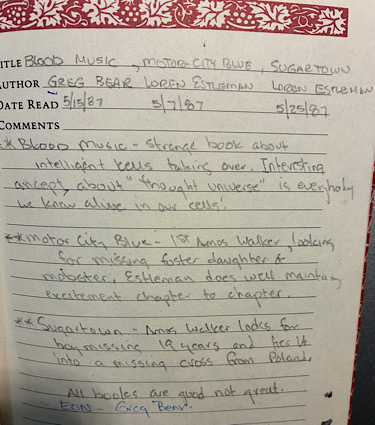 TITLE BLOOD MUSIC, MOTOR CITY BLUE, SUGARTOWN
AUTHOR GREG BEAR LOREN ESTLEMAN LOREN ESTLEMAN
DATE READ 5/15/87 5/7/87 5/25/87
COMMENTS
* Blood Music - Strange book about
intelligent cells taking over. Interesting
concept about "thought universe" is everybody
we knew alive in our cells!
** Motor City Blue - 1st Amos Walker, looking
for missing foster daughter of
mobster. Estleman does well
excitement chapter to chapter.
** Sugartown - Amos Walker looks for
boy missing 19 years and
into a missing cross from Poland.
All books are good not great.
EON - Greg Bear